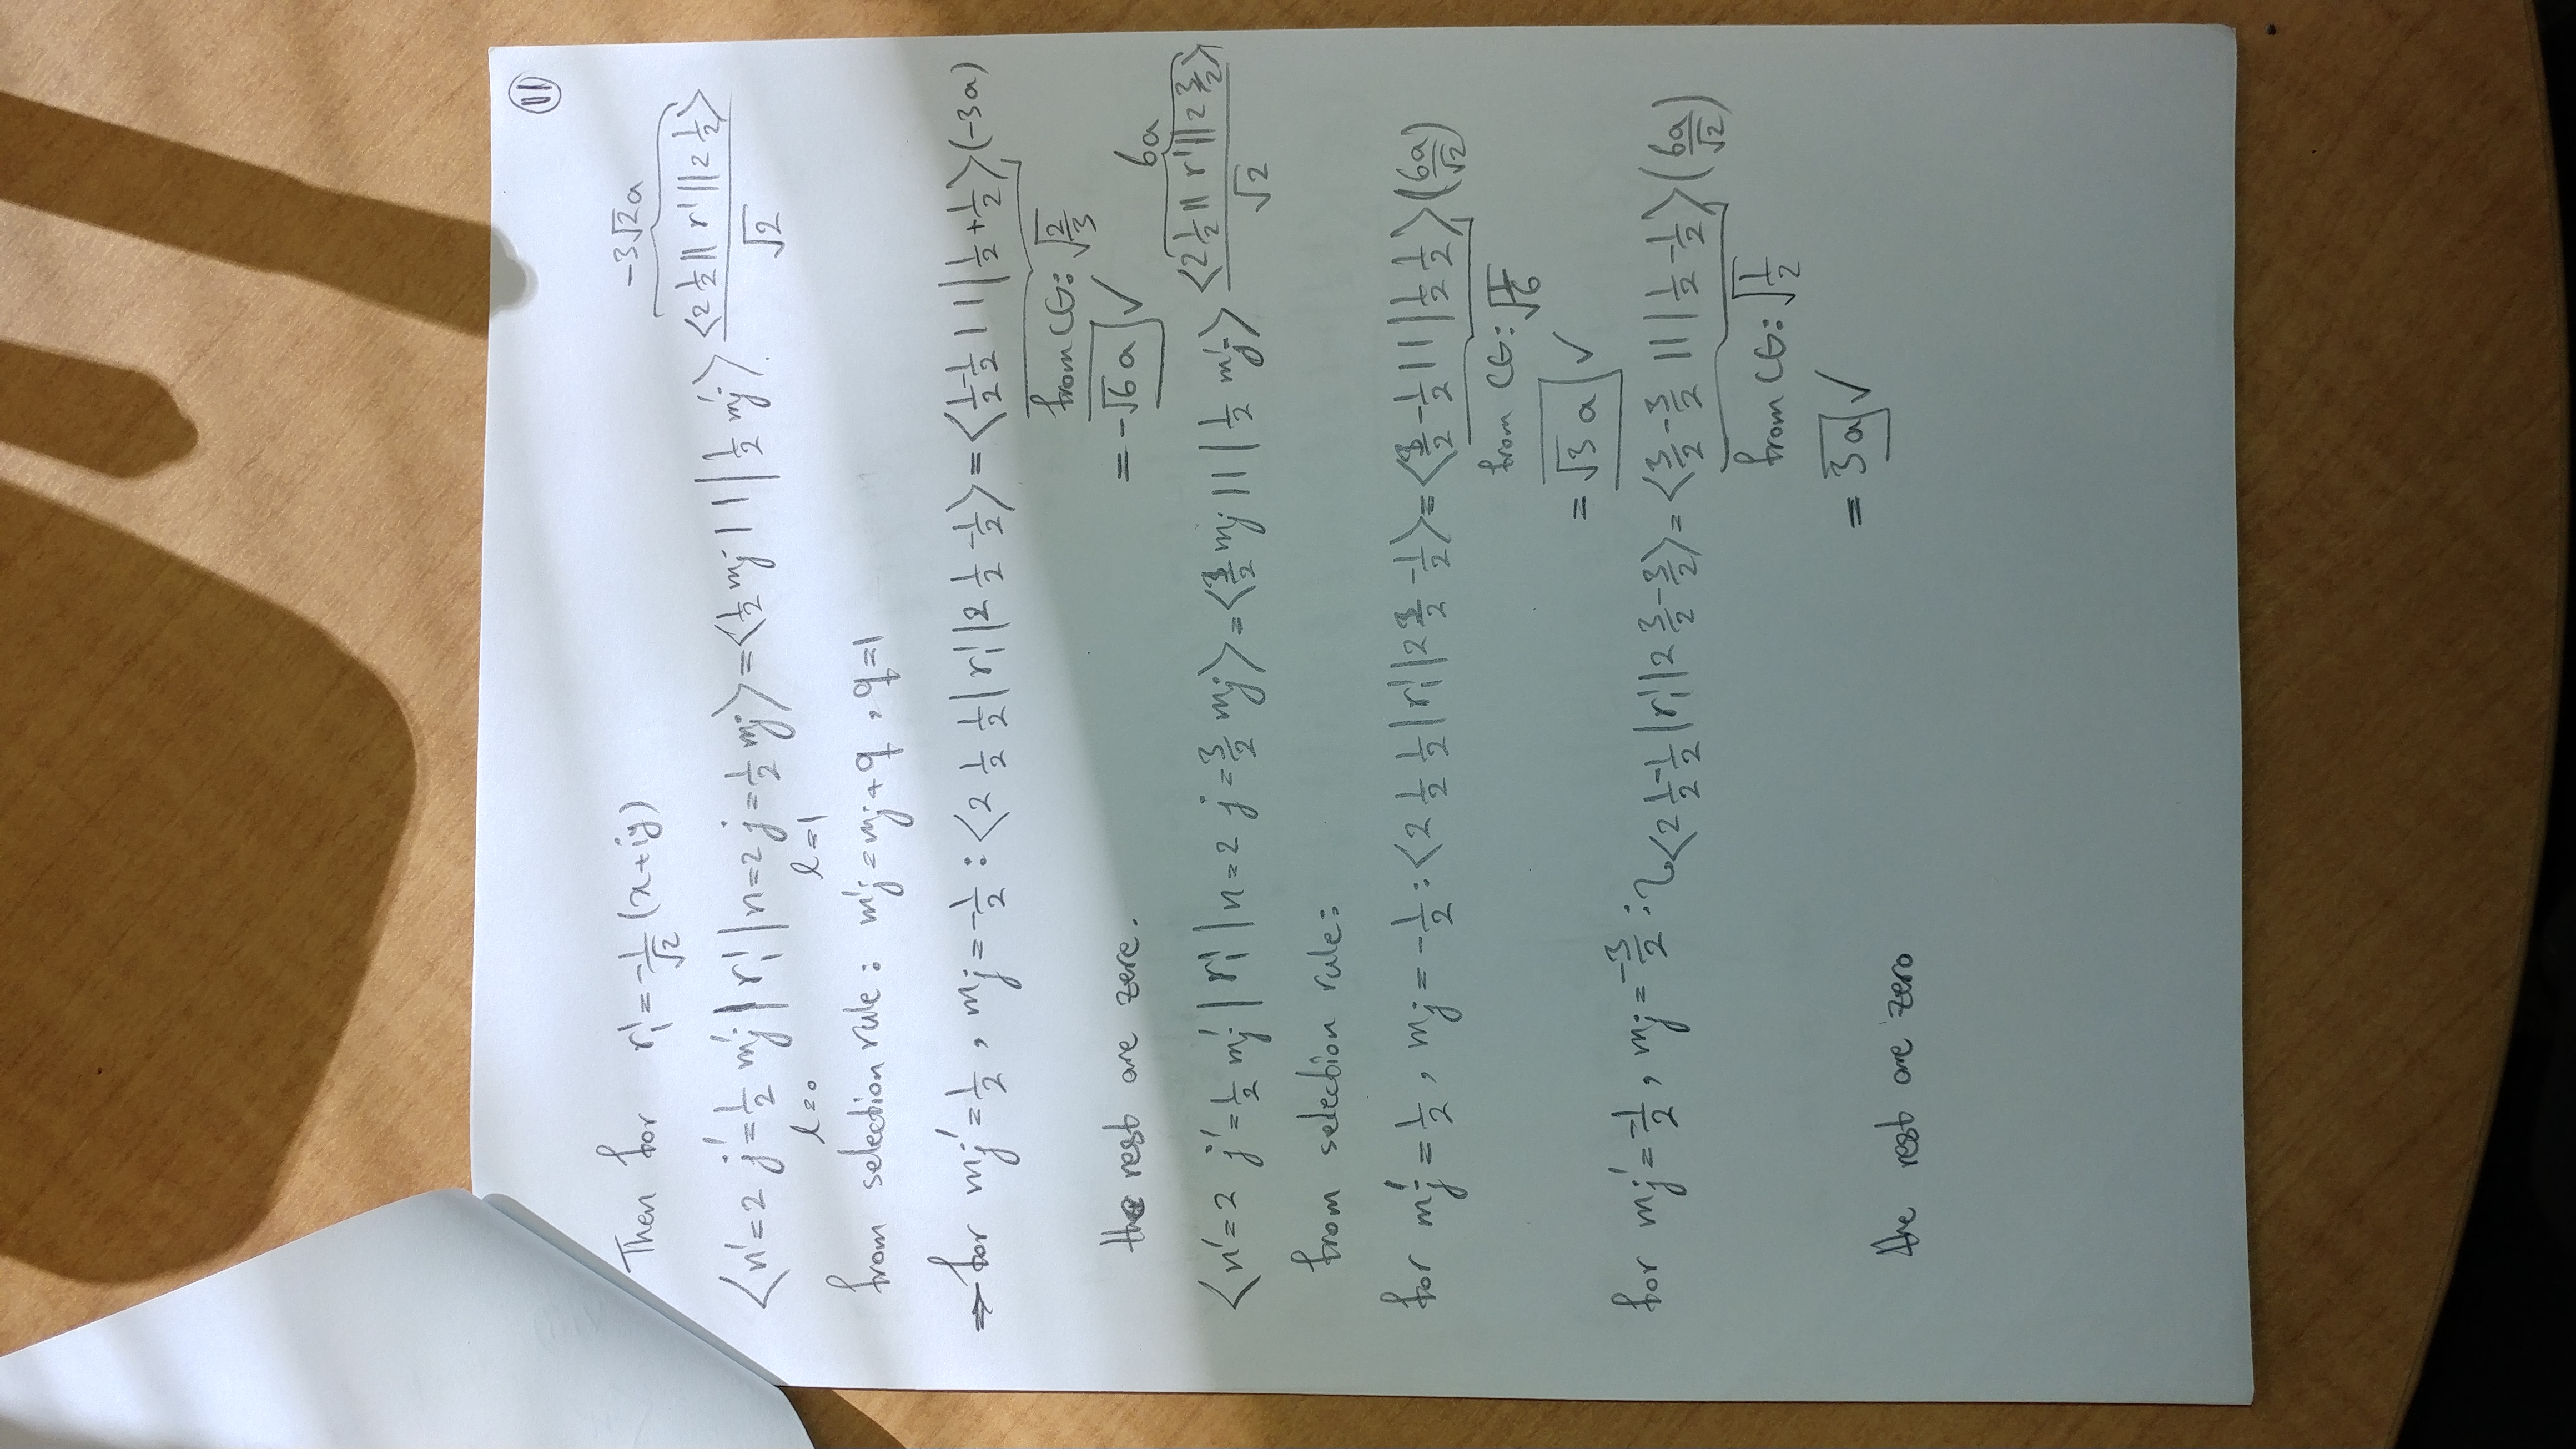 11
Then for r¹₁ = -1/√2 (x+iy)
-3√2a
⟨n'=2 j'=1/2 mj' | r¹₁ | n=2 j=1/2 mj⟩ = ⟨1/2 mj 1 1 | 1/2 mj'⟩ ⟨2 1/2 || r¹ || 2 1/2⟩ / √2
l=0 l=1
from selection rule: m'j = mj + q , q=1
⇒ for mj' = 1/2 , mj = -1/2 : ⟨2 1/2 1/2 | r¹₁ | 2 1/2 -1/2⟩ = ⟨1/2 -1/2 1 1 | 1/2 +1/2⟩ (-3a)
from CG: √(2/3)
the rest are zere.
= -√6 a ✓
6a
⟨n'=2 j'=1/2 mj' | r¹₁ | n=2 j=3/2 mj⟩ = ⟨3/2 mj 1 1 | 1/2 m'j⟩ ⟨2 1/2 || r¹ || 2 3/2⟩ / √2
from selection rule:
for m'j = 1/2 , mj = -1/2 : ⟨2 1/2 1/2 | r¹₁ | 2 3/2 -1/2⟩ = ⟨3/2 -1/2 1 1 | 1/2 1/2⟩ (6a/√2)
from CG: √(1/6)
= √3 a ✓
for mj' = -1/2 , mj = -3/2 : ⟨2 1/2 -1/2 | r¹₁ | 2 3/2 -3/2⟩ = ⟨3/2 -3/2 1 1 | 1/2 -1/2⟩ (6a/√2)
from CG: √(1/2)
= 3a ✓
the rest are zero